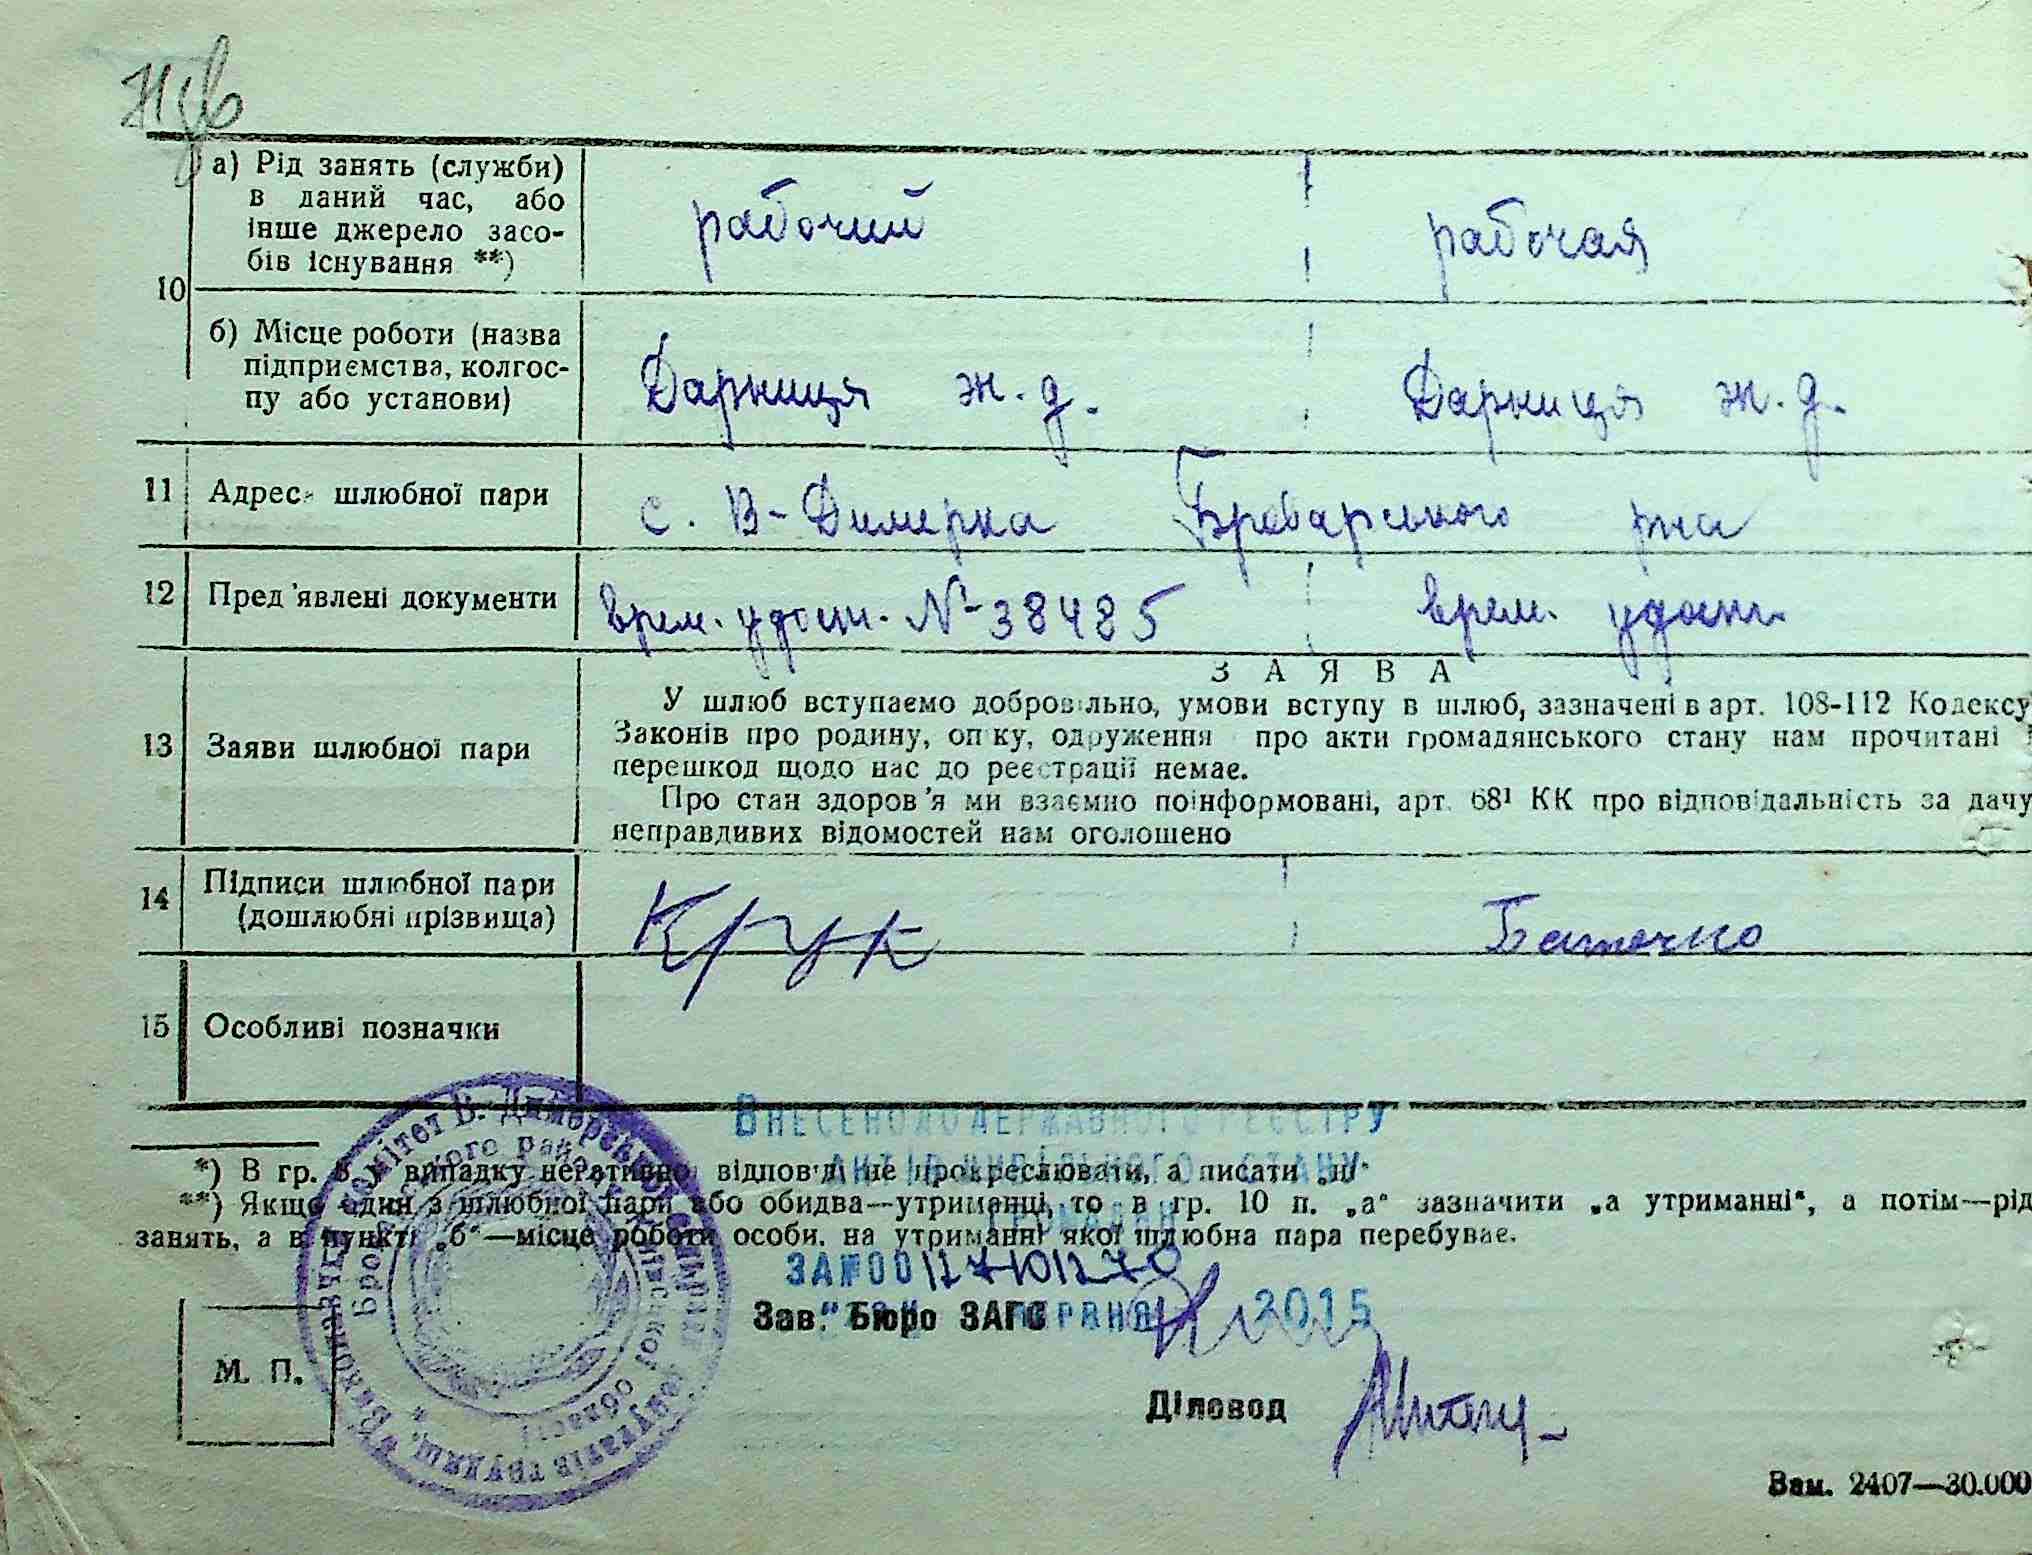 а) Рід занять (служби) в даний час, або інше джерело засо-бів існування **) рабочий рабочая
10
б) Місце роботи (назва підприємства, колгос-пу або установи) Дарниця ж.д. Дарниця ж.д.
11 Адреса шлюбної пари с. В-Димерка Броварського р-на
12 Пред'явлені документи врем. удост. № 38485 врем. удост.
З А Я В А
13 Заяви шлюбної пари
У шлюб вступаємо добровільно, умови вступу в шлюб, зазначені в арт. 108-112 Кодексу
Законів про родину, опіку, одруження про акти громадянського стану нам прочитані і
перешкод щодо нас до реєстрації немає.
Про стан здоров'я ми взаємно поінформовані, арт. 68¹ КК про відповідальність за дачу
неправдивих відомостей нам оголошено
14 Підписи шлюбної пари (дошлюбні прізвища) Крук Батечко
15 Особливі позначки
Внесено до Державного реєстру
актів цивільного стану
громадян
*) В гр. 8 у випадку негативної відповіді не прокреслювати, а писати „ні“
**) Якщо один з шлюбної пари або обидва—утриманці, то в гр. 10 п. „а“ зазначити „а утриманні“, а потім—рід
занять, а в пункті „б“—місце роботи особи, на утриманні якої шлюбна пара перебуває.
ЗА №00127101270
Зав. Бюро ЗАГС
2015
М. П.
Діловод
Зам. 2407—30.000